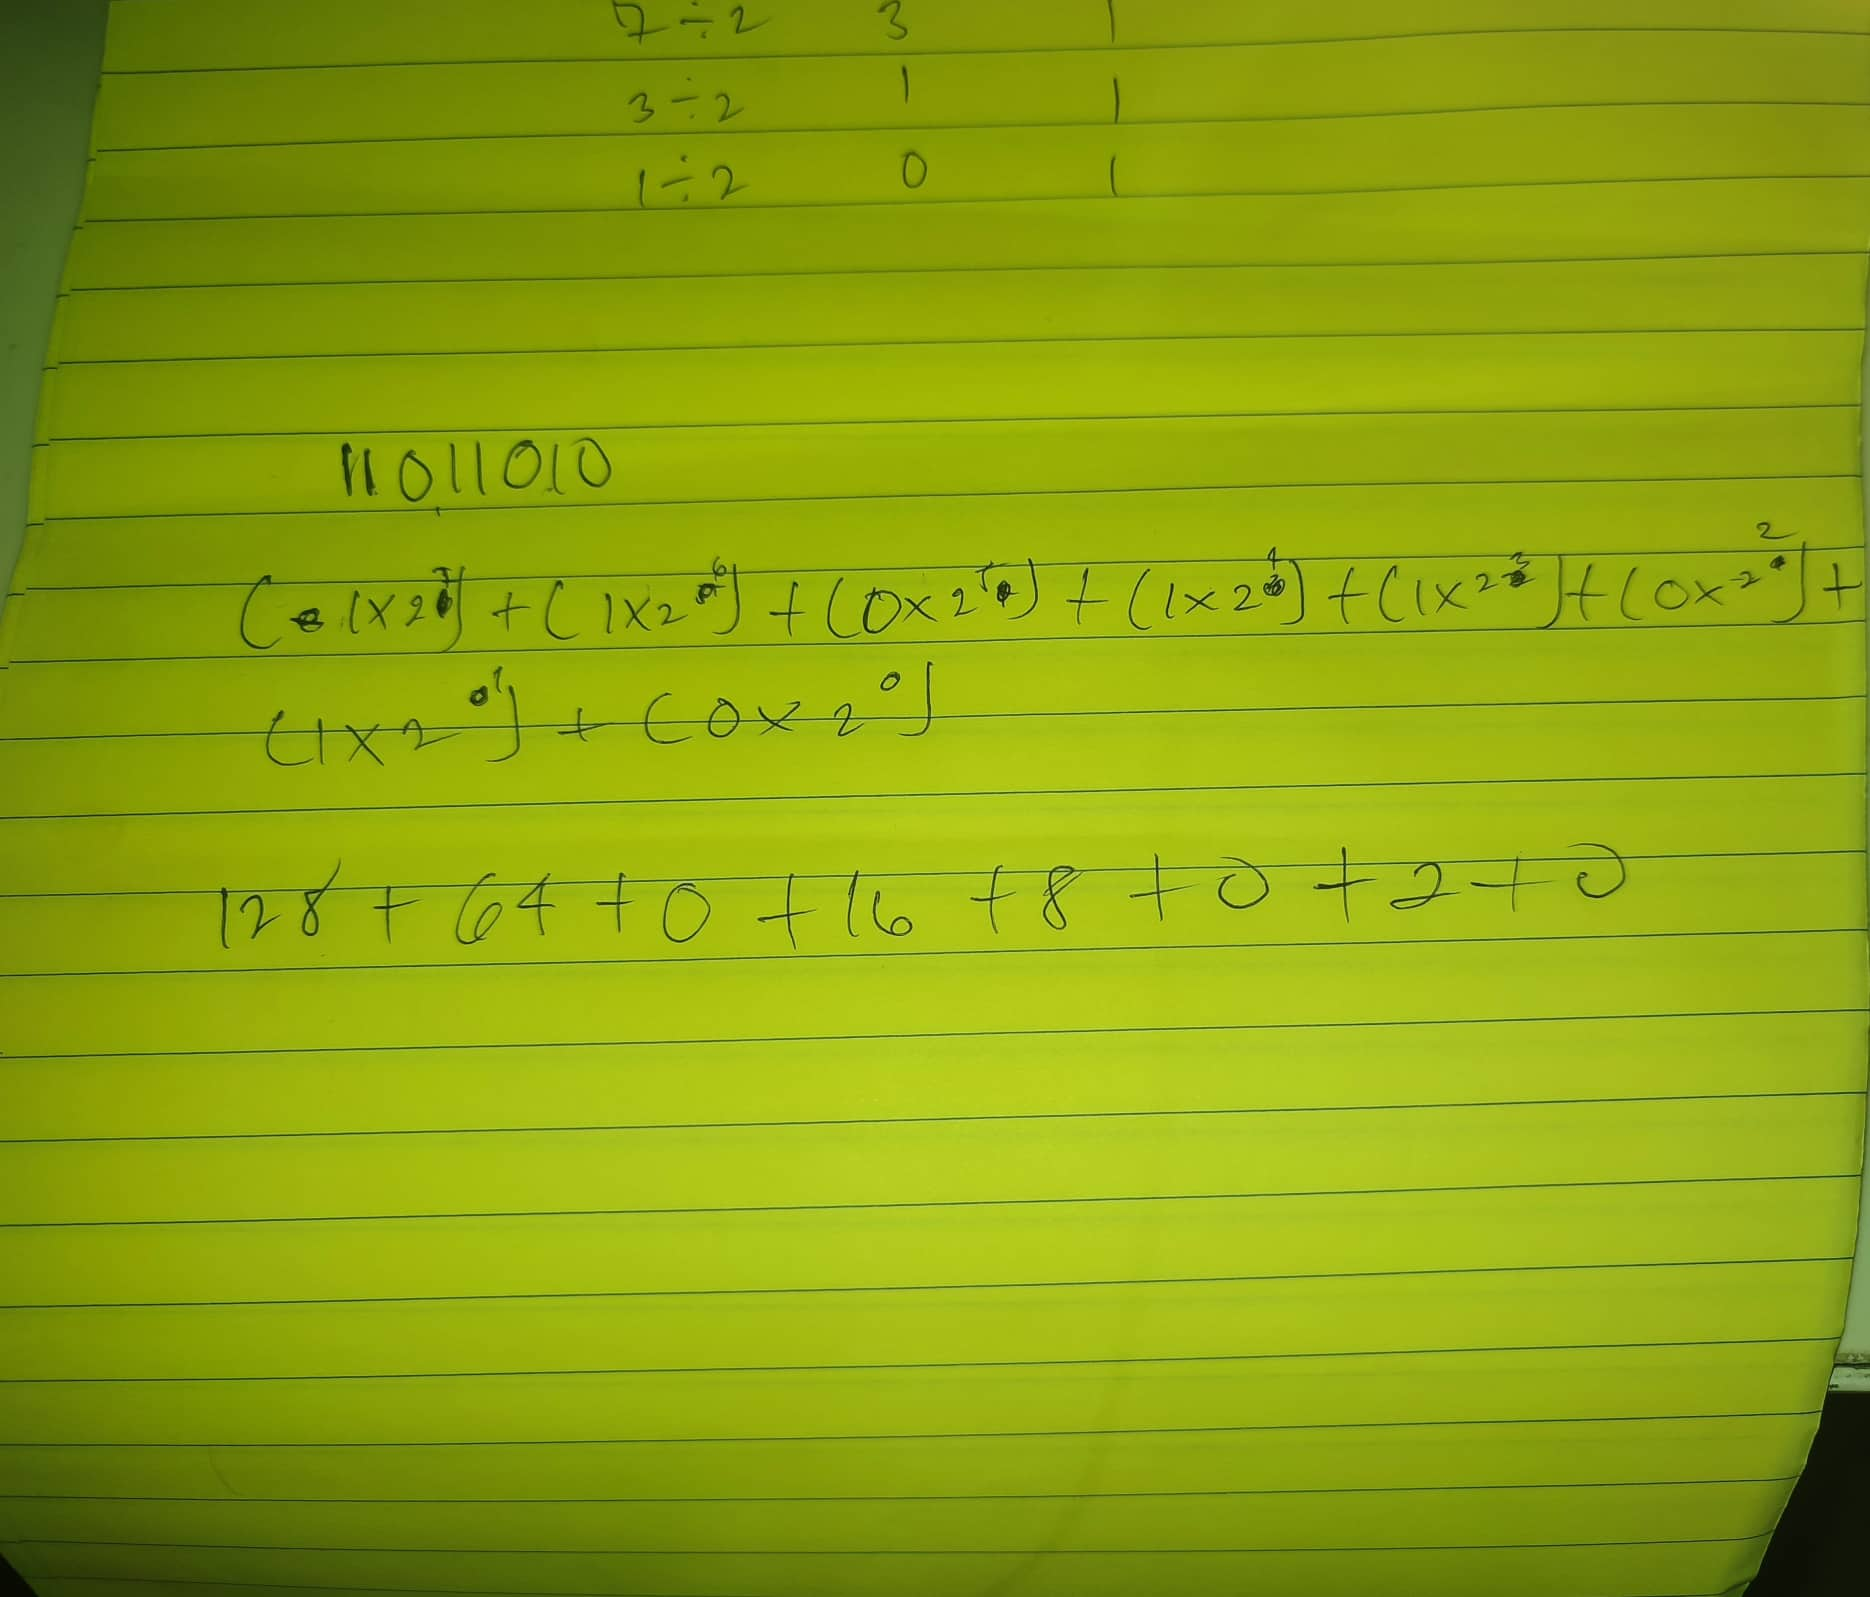 7÷2 3 1
3÷2 1 1
1÷2 0 1
11011010
(1x2⁷) + (1x2⁶) + (0x2⁵) + (1x2⁴) + (1x2³) + (0x2²) +
(1x2¹) + (0x2⁰)
128 + 64 + 0 + 16 + 8 + 0 + 2 + 0